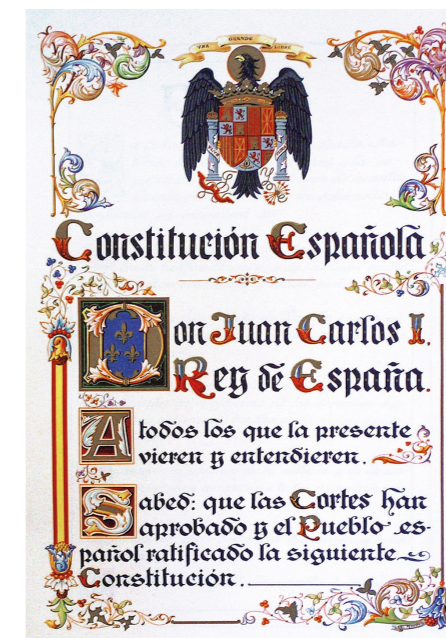 UNA GRANDE LIBRE
Constitución Española
Don Juan Carlos I,
Rey de España.
A todos los que la presente
vieren y entendieren.
Sabed: que las Cortes han
aprobado y el Pueblo es-
pañol ratificado la siguiente
Constitución.